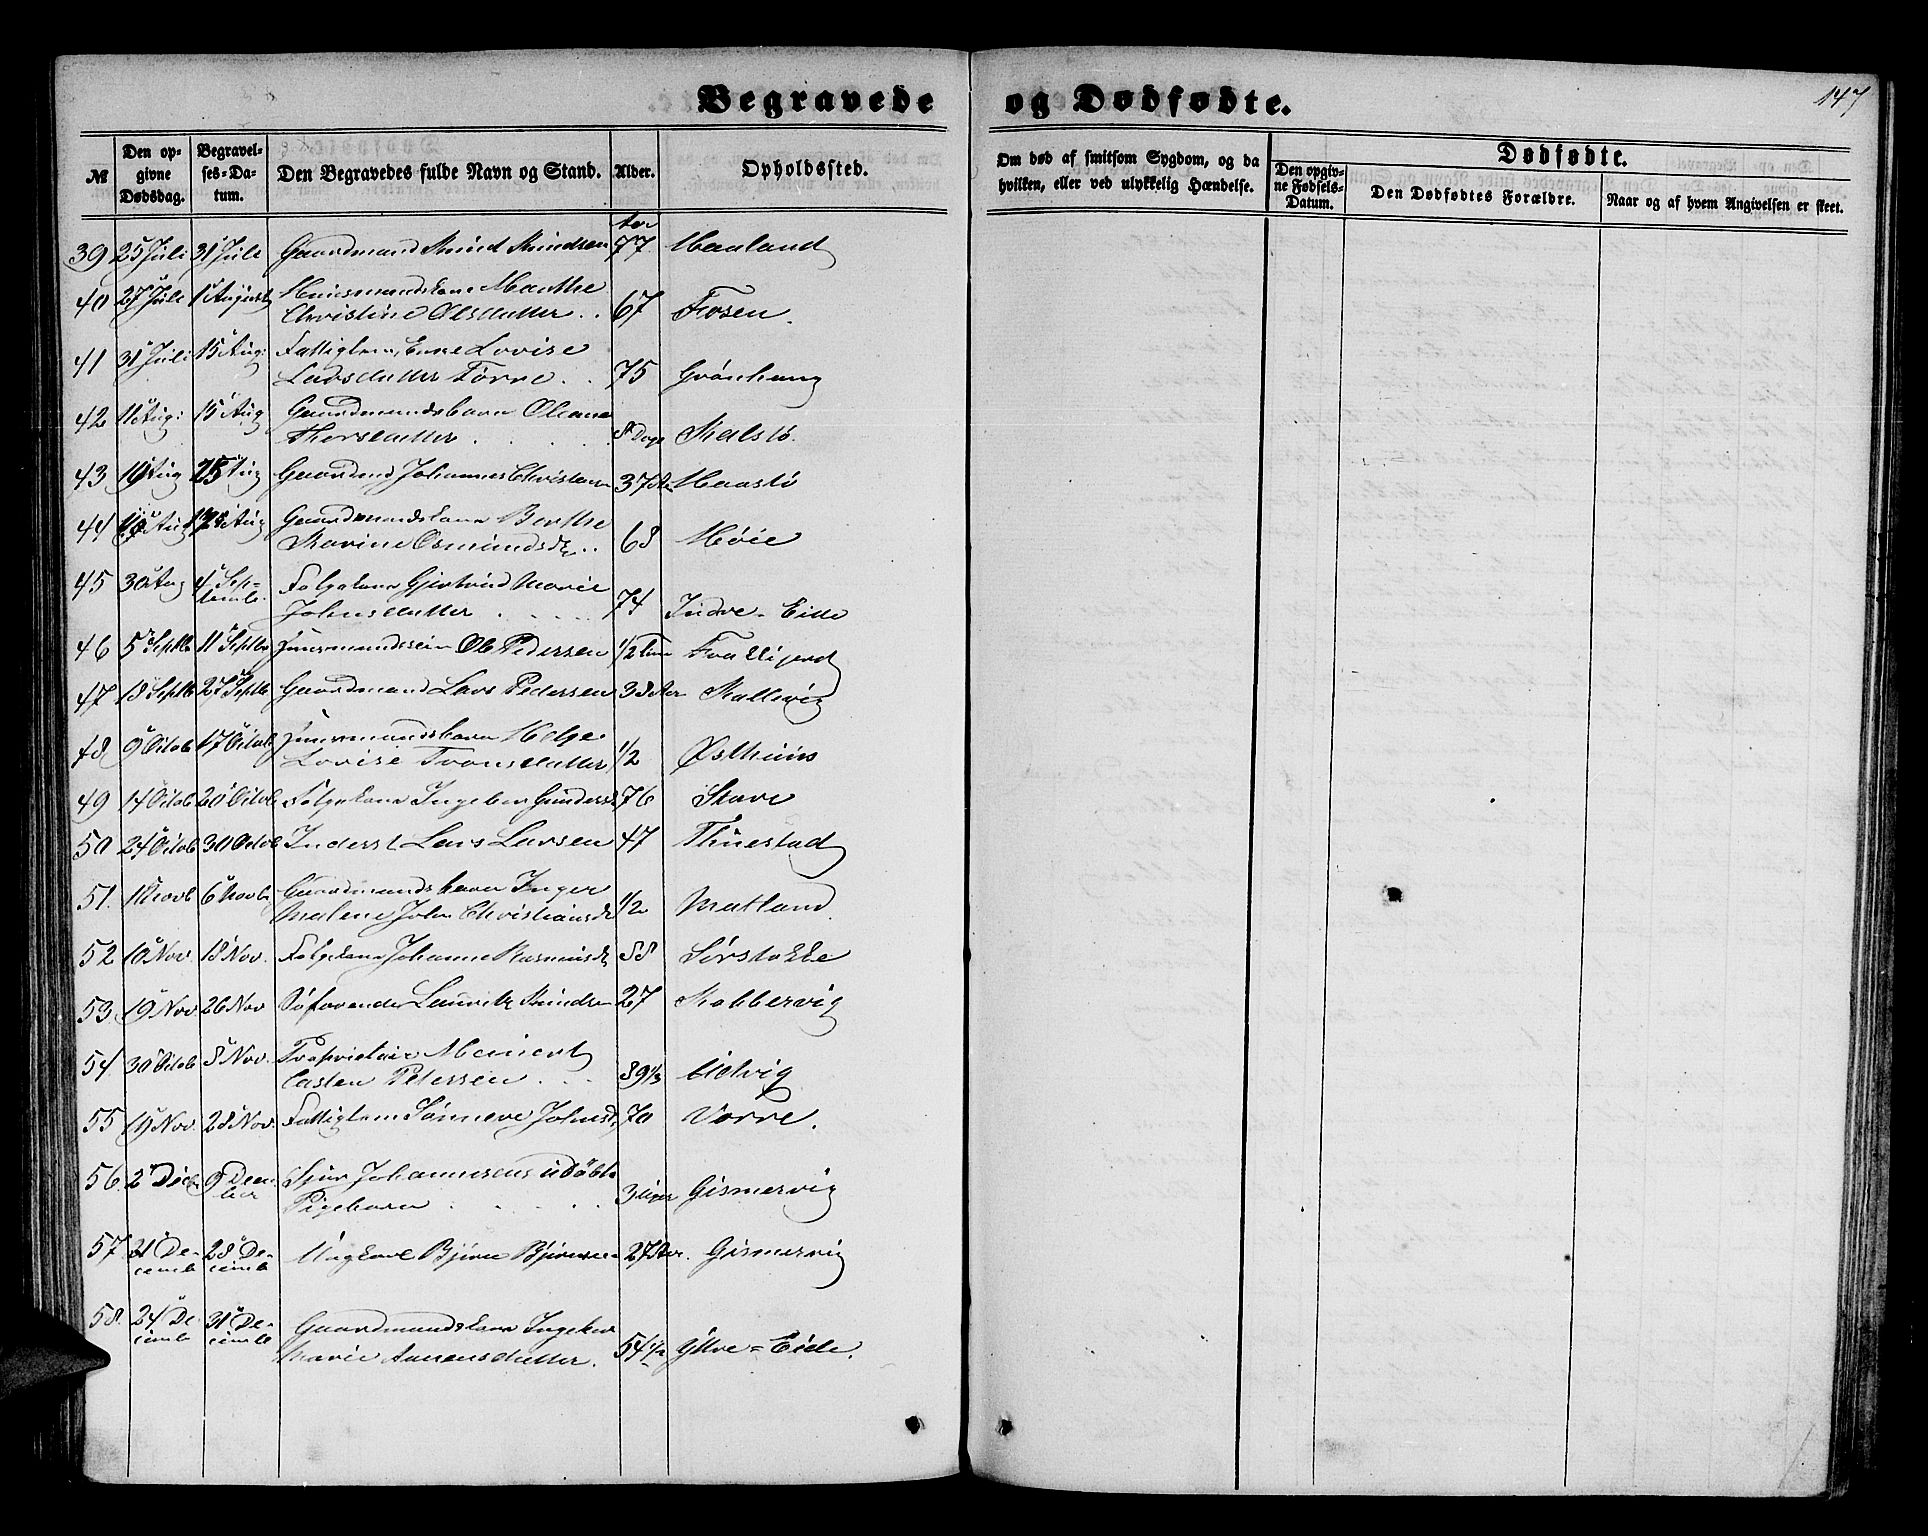 147
Begravede og Dødfødte.
№ Den opgivne Dødsdag. Begravelses-Datum. Den Begravedes fulde Navn og Stand. Alder. Opholdssted. Om død af smitsom Sygdom, og da hvilken, eller ved ulykkelig Hændelse. Dødfødte.
Den opgivne Fødsels-Datum. Den Dødfødtes Forældre. Naar og af hvem Angivelsen er skeet.
39 25 Juli 31 Juli Gaardmand Knud Knudsen 77 Haaland
40 27 Juli 1 August Huusmandskone Marthe
Christine Olsdatter . . 67 Fosen.
41 31 Juli 15 Aug: Fattiglem, Enke Lovise
Larsdatter Førre . . 75 Grönhaug
42 11 Aug: 15 Aug Gaardmandsbarn Oleane
Thorsdatter 8 Dage Kalstö.
43 19 Aug 25 Aug Gaardmd Johannes Christens 37 Aar Haastö
44 Aug Aug Gaardmandskone Berthe
Karine Osmundsdr . . 68 Höie
45 30 Aug 4 Septemb. Følgekone Gjertrud Marie
Johnsdatter . . . . . 74 Indre-Eide
46 5 Septb 11 Septbr Huusmandssøn Ole Pedersen 1/2 Time
47 18 Septb 27 Septb Gaardmand Lars Pedersen 38 Aar Kallevig
48 9 Octob 17 Octob Huusmandsbarn Helge
Lovise Tronsdatter 1/2 Østhuus
49 14 Octob 20 Octob Følgekone Ingebor Gundersd 76 Stave
50 24 Octob 30 Octob Inderst Lars Larsen 47 Thuestad
51. 1 Novb 6 Novb. Gaardmandsbarn Inger
Malene John Christiansdr 1/2 Matland.
52 10 Nov. 18 Nov. Følgekone Johanne Rasmusdr 58 Sörstokke
53 19 Nov. 26 Nov Søfarende Lauritz Knudsen 27 Kobbervig
54. 30 Octob 8 Nov. Proprietair Meinert
Casten Petersen . . . 89 1/3 Udvig
55 19 Nov. 28 Nov. Fattiglem Sönneve Johnsd 70 Vorre.
56. 2 Decb. 9 December Sjur Johannesens udöbte
Pigebarn . . . . . 3 Uger Gismervig
57. 21 Decemb 28 Decemb Ungkarl Björn Björnsen 27 Aar. Gismervig
58. 24 Decemb 31 Decemb Gaardmandskone Ingebor
Marie Aanensdatter. 54 1/2 Yttre-Eide.